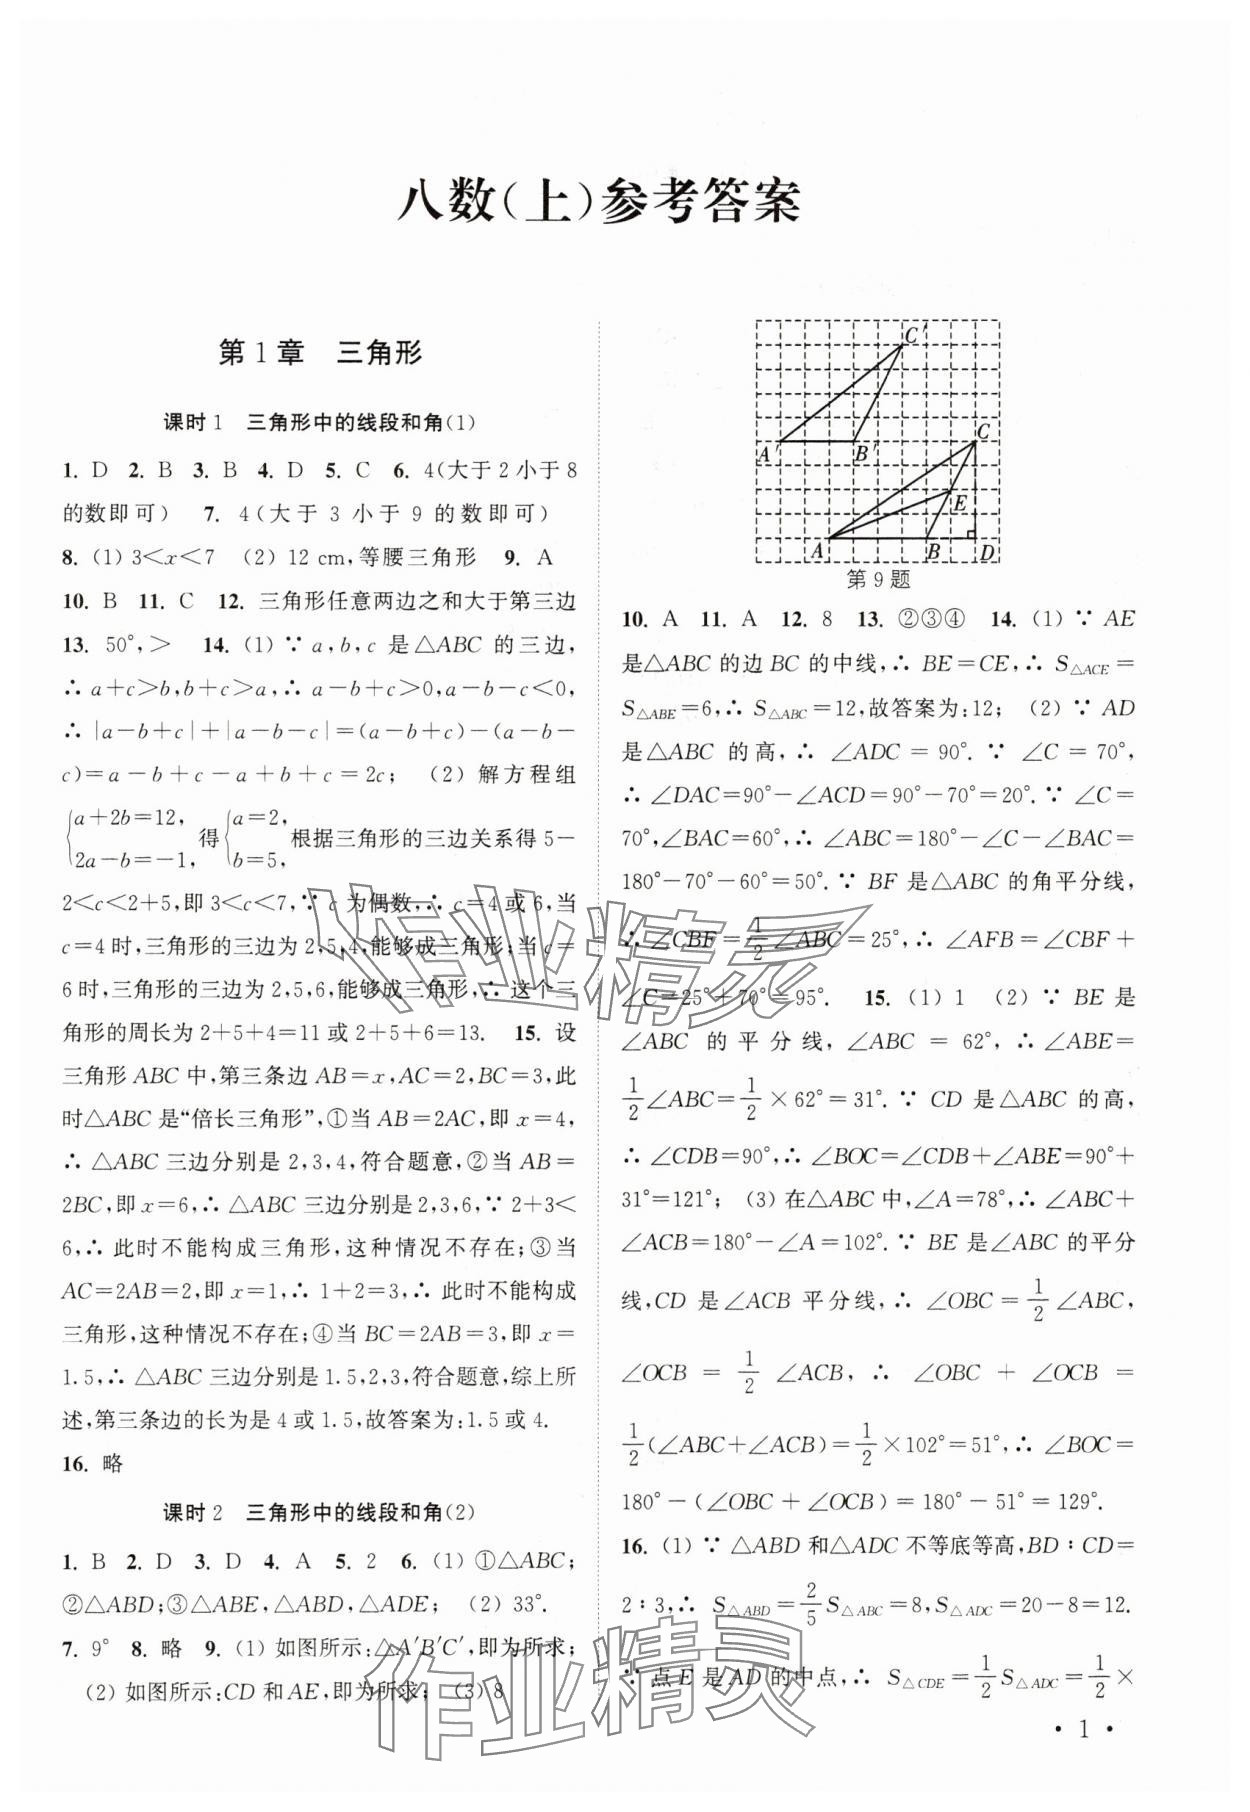 八数(上)参考答案
第1章 三角形
课时1 三角形中的线段和角(1)
1. D 2. B 3. B 4. D 5. C 6. 4(大于2小于8
的数即可) 7. 4(大于3小于9的数即可)
8. (1) 3<x<7 (2) 12 cm,等腰三角形 9. A
10. B 11. C 12. 三角形任意两边之和大于第三边
13. 50°,> 14. (1) ∵ a,b,c 是△ABC 的三边,
∴ a+c>b,b+c>a,∴ a-b+c>0,a-b-c<0,
∴ |a-b+c|+|a-b-c|=(a-b+c)-(a-b-
c)=a-b+c-a+b+c=2c; (2) 解方程组
{a+2b=12, 2a-b=-1, 得 {a=2, b=5, 根据三角形的三边关系得 5-
2<c<2+5,即 3<c<7,∵ c 为偶数,∴ c=4 或 6,当
c=4 时,三角形的三边为 2,5,4,能够成三角形;当 c=
6 时,三角形的三边为 2,5,6,能够成三角形,∴ 这个三
角形的周长为 2+5+4=11 或 2+5+6=13. 15. 设
三角形 ABC 中,第三条边 AB=x,AC=2,BC=3,此
时△ABC 是“倍长三角形”,①当 AB=2AC,即 x=4,
∴ △ABC 三边分别是 2,3,4,符合题意,②当 AB=
2BC,即 x=6,∴ △ABC 三边分别是 2,3,6,∵ 2+3<
6,∴ 此时不能构成三角形,这种情况不存在;③当
AC=2AB=2,即 x=1,∴ 1+2=3,∴ 此时不能构成
三角形,这种情况不存在;④当 BC=2AB=3,即 x=
1.5,∴ △ABC 三边分别是 1.5,2,3,符合题意,综上所
述,第三条边的长为是 4 或 1.5,故答案为:1.5 或 4.
16. 略
课时2 三角形中的线段和角(2)
1. B 2. D 3. D 4. A 5. 2 6. (1) ①△ABC;
②△ABD;③△ABE,△ABD,△ADE; (2) 33°.
7. 9° 8. 略 9. (1) 如图所示:△A'B'C',即为所求;
(2) 如图所示:CD 和 AE,即为所求; (3) 8
C'
A' B' C
E
A B D
第9题
10. A 11. A 12. 8 13. ②③④ 14. (1) ∵ AE
是△ABC 的边 BC 的中线,∴ BE=CE,∴ S△ACE=
S△ABE=6,∴ S△ABC=12,故答案为:12; (2) ∵ AD
是△ABC 的高,∴ ∠ADC=90°. ∵ ∠C=70°,
∴ ∠DAC=90°-∠ACD=90°-70°=20°. ∵ ∠C=
70°,∠BAC=60°,∴ ∠ABC=180°-∠C-∠BAC=
180°-70°-60°=50°. ∵ BF 是△ABC 的角平分线,
∴ ∠CBF=1/2∠ABC=25°,∴ ∠AFB=∠CBF+
∠C=25°+70°=95°. 15. (1) 1 (2) ∵ BE 是
∠ABC 的平分线,∠ABC=62°,∴ ∠ABE=
1/2∠ABC=1/2×62°=31°. ∵ CD 是△ABC 的高,
∴ ∠CDB=90°,∴ ∠BOC=∠CDB+∠ABE=90°+
31°=121°; (3) 在△ABC 中,∠A=78°,∴ ∠ABC+
∠ACB=180°-∠A=102°. ∵ BE 是∠ABC 的平分
线,CD 是∠ACB 平分线,∴ ∠OBC=1/2∠ABC,
∠OCB=1/2∠ACB,∴ ∠OBC+∠OCB=
1/2(∠ABC+∠ACB)=1/2×102°=51°,∴ ∠BOC=
180°-(∠OBC+∠OCB)=180°-51°=129°.
16. (1) ∵ △ABD 和△ADC 不等底等高,BD∶CD=
2∶3,∴ S△ABD=2/5S△ABC=8,S△ADC=20-8=12.
∵ 点 E 是 AD 的中点,∴ S△CDE=1/2S△ADC=1/2×
· 1 ·
作业精灵
作业精灵